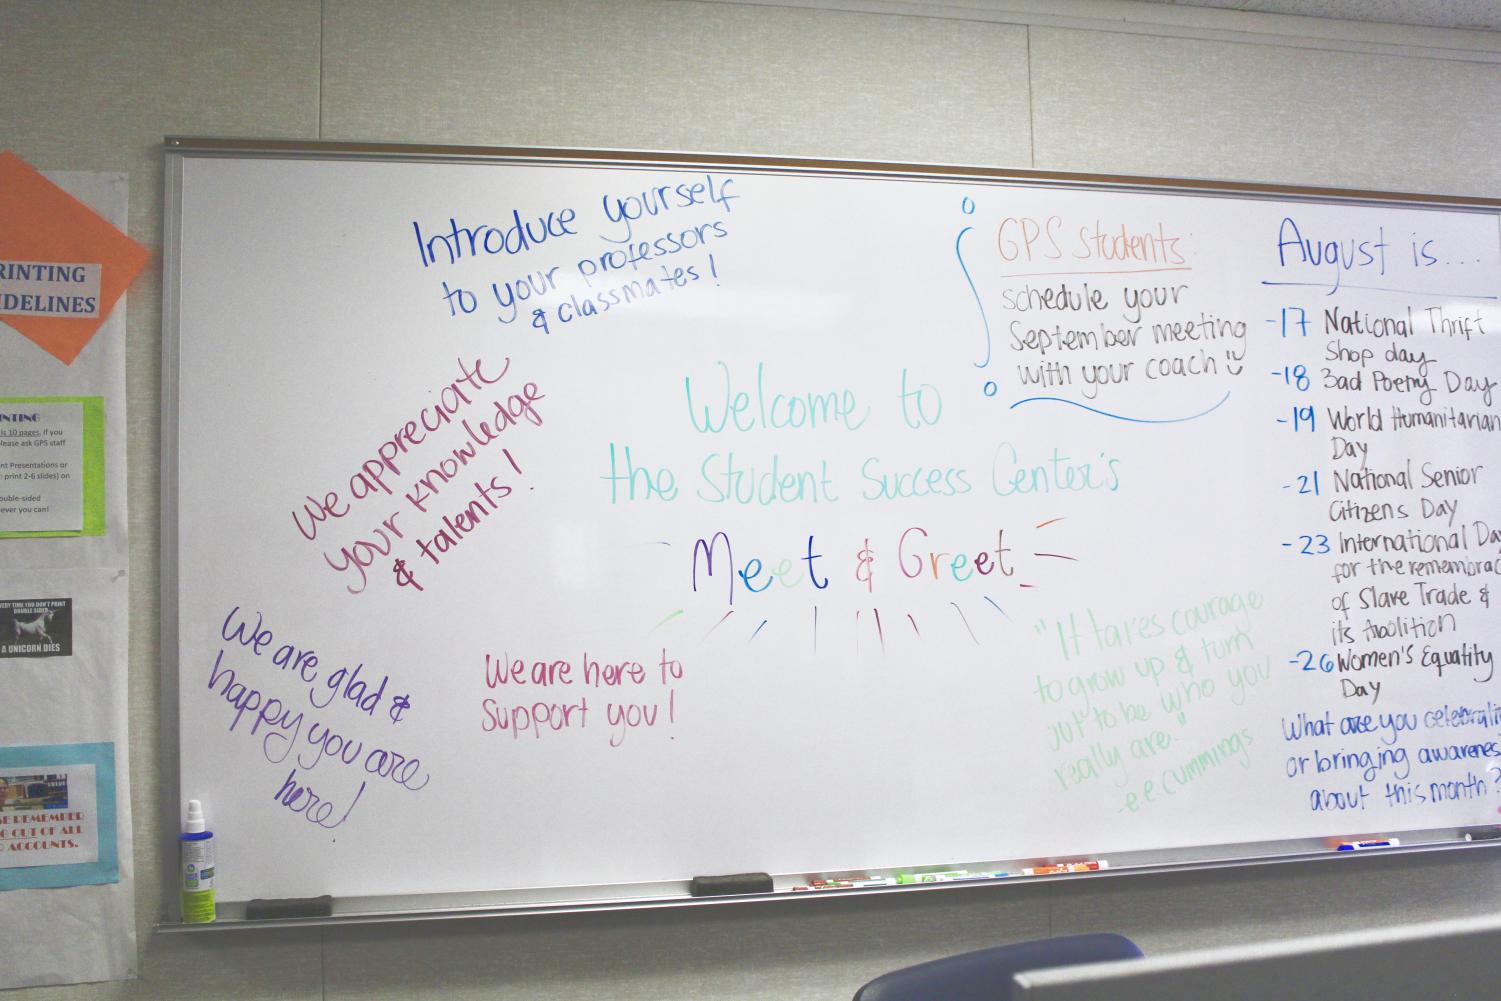 Introduce yourself
to your professors
& classmates!
We appreciate
your knowledge
& talents!
We are glad &
happy you are
here!
We are here to
support you!
Welcome to
the Student Success Center's
Meet & Greet
GPS Students:
schedule your
September meeting
with your coach
"It takes courage
to grow up & turn
out to be who you
really are."
-e.e cummings
August is...
-17 National Thrift
Shop day
-18 Bad Poetry Day
-19 World Humanitarian
Day
-21 National Senior
Citizens Day
-23 International Da
for the remembrac
of Slave Trade &
its Abolition
-26 Women's Equality
Day
What are you celebrati
or bringing awarenes
about this month?
RINTING
IDELINES
NTING
is 10 pages. If you
lease ask GPS staff
nt Presentations or
print 2-6 slides) on
ouble-sided
ever you can!
VERY TIME YOU DON'T PRINT
DOUBLE SIDED
A UNICORN DIES
SE REMEMBER
G OUT OF ALL
ACCOUNTS.